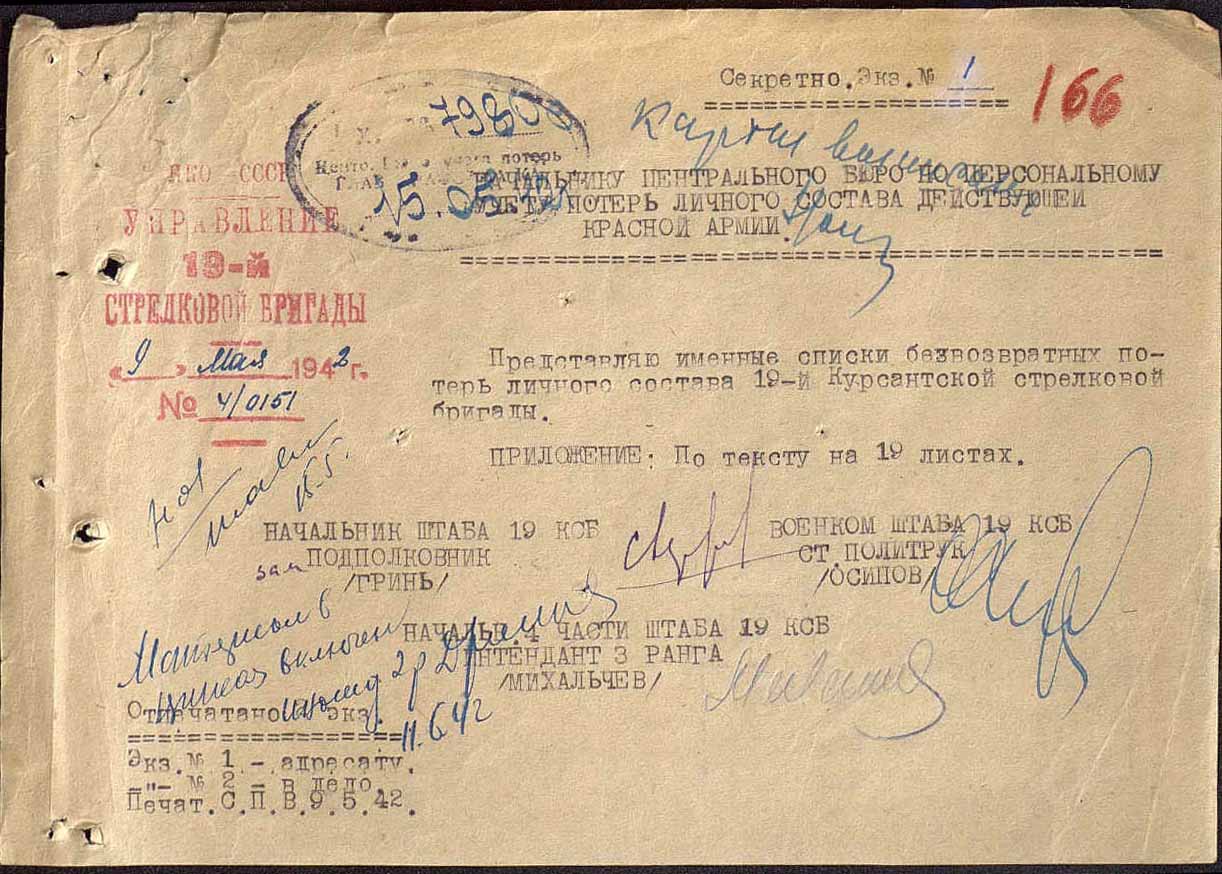 Секретно. Экз. № 1
166
НКО СССР
УПРАВЛЕНИЕ
19-й
СТРЕЛКОВОЙ БРИГАДЫ
«9» Мая 1942 г.
№ 4/0151
7980
потерь
15.05.42
НАЧАЛЬНИКУ ЦЕНТРАЛЬНОГО БЮРО ПО ПЕРСОНАЛЬНОМУ
УЧЕТУ ПОТЕРЬ ЛИЧНОГО СОСТАВА ДЕЙСТВУЮЩЕЙ
КРАСНОЙ АРМИИ.
Представляю именные списки безвозвратных по-
терь личного состава 19-й Курсантской стрелковой
бригады.
ПРИЛОЖЕНИЕ: По тексту на 19 листах.
15.5.
НАЧАЛЬНИК ШТАБА 19 КСБ
зам ПОДПОЛКОВНИК
/ГРИНЬ/
ВОЕНКОМ ШТАБА 19 КСБ
СТ ПОЛИТРУК
/ОСИПОВ/
НАЧАЛЬН. 4 ЧАСТИ ШТАБА 19 КСБ
ИНТЕНДАНТ 3 РАНГА
/МИХАЛЬЧЕВ/
Материал в
приказ включен
11.6.42г
Отпечатано экз.
Экз. № 1 - адресату.
-"- № 2 - в дело.
Печат. С.П.В. 9.5.42.